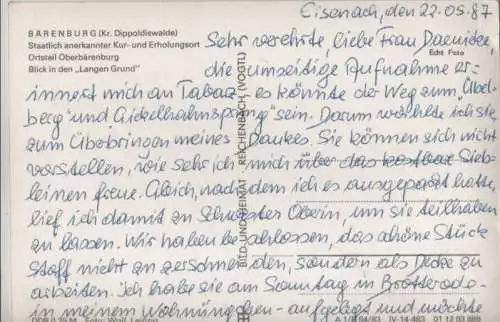 Eisenach, den 22.05.87
BÄRENBURG (Kr. Dippoldiswalde)
Staatlich anerkannter Kur- und Erholungsort
Ortsteil Oberbärenburg
Blick in den „Langen Grund"
Echt Foto
Sehr verehrte, liebe Frau
die umseitige Aufnahme er-
innert mich an Tabarz - es könnte der Weg zum „Übel-
berg und Gickelhahnsprung" sein. Darum wählte ich sie
zum Überbringen meines Dankes. Sie können sich nicht
vorstellen, wie sehr ich mich über das kostbare Sieb-
leinen freue. Gleich, nachdem ich es ausgepackt hatte
lief ich damit zu Schwester Oberin, um sie teilhaben
zu lassen. Wir haben beschlossen, das schöne Stück
Stoff nicht zu zerschneiden, sondern als Decke zu
arbeiten. Ich habe sie am Sonntag in Brotterode -
in meinem Wohnungchen - aufgelegt und möchte
BILD UND HEIMAT REICHENBACH (VOGTL)
IV-14-483 01 12 03 888